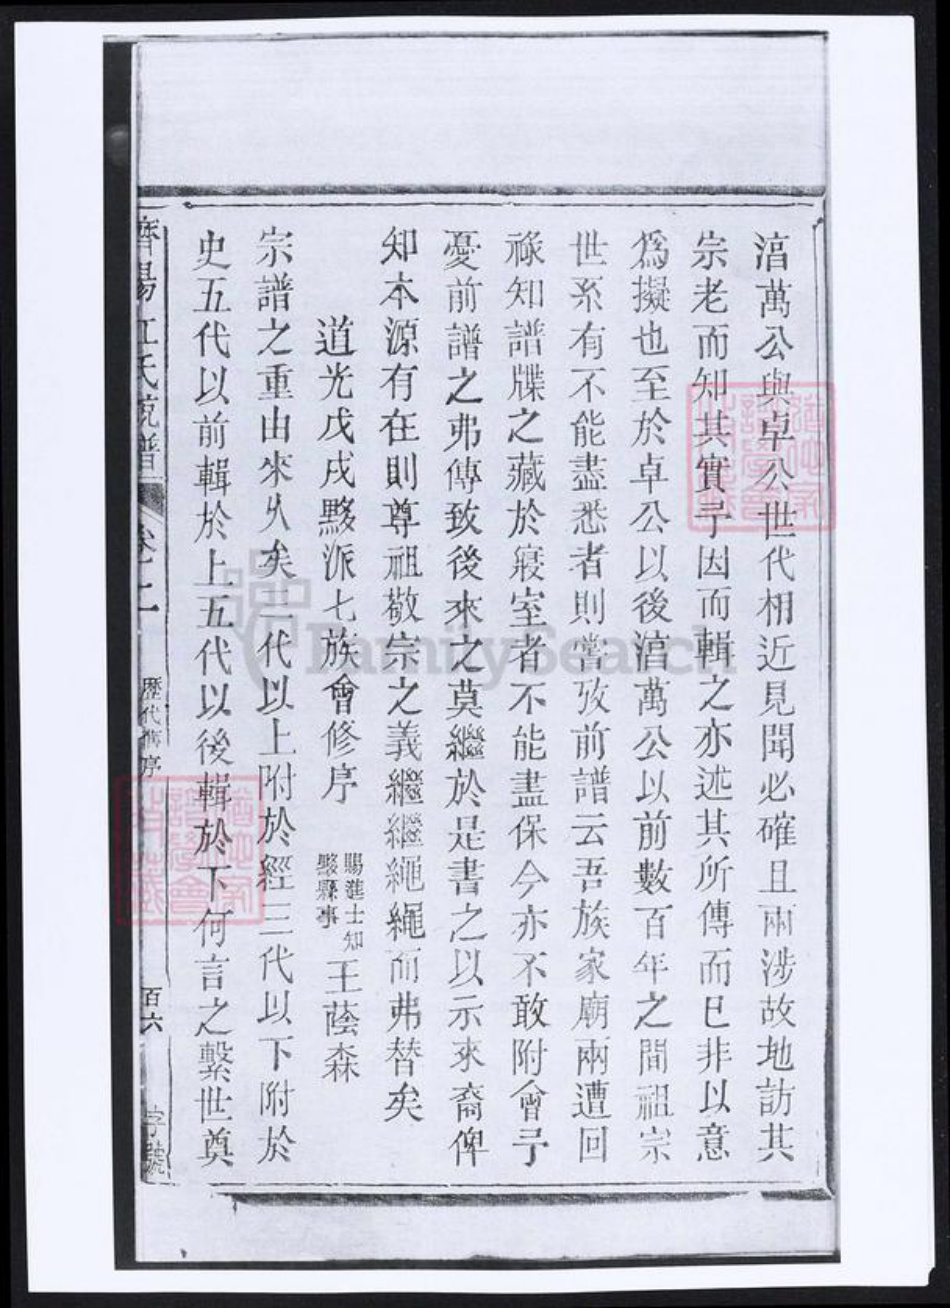 湻萬公與卓公世代相近見聞必確且兩涉故地訪其
宗老而知其實予因而輯之亦述其所傳而已非以意
爲擬也至於卓公以後湻萬公以前數百年之間祖宗
世系有不能盡悉者則嘗攷前譜云吾族家廟兩遭回
祿知譜牒之藏於寢室者不能盡保今亦不敢附會予
憂前譜之弗傳致後來之莫繼於是書之以示來裔俾
知本源有在則尊祖敬宗之義繼繼繩繩而弗替矣
道光戊戌黟派七族會修序 賜進士知黟縣事 王蔭森
宗譜之重由來久矣三代以上附於經三代以下附於
史五代以前輯於上五代以後輯於下何言之繫世奠
濟陽江氏統譜 卷十一 歷代舊序 百六 字號
FamilySearch